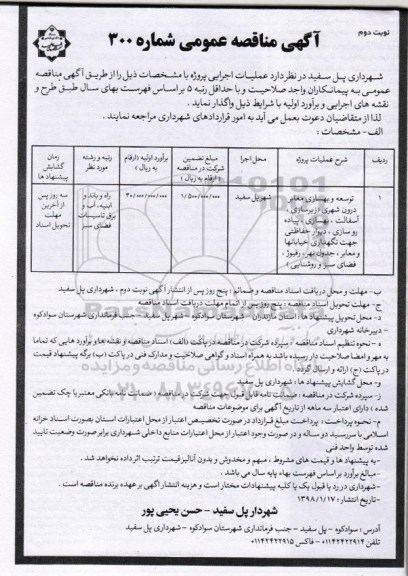 نوبت دوم
آگهی مناقصه عمومی شماره ۳۰۰
شهرداری پل سفید در نظر دارد عملیات اجرایی پروژه با مشخصات ذیل را از طریق آگهی مناقصه
عمومی به پیمانکاران واجد صلاحیت و با حداقل رتبه ۵ بر اساس فهرست بهای سال طبق طرح و
نقشه های اجرایی و برآورد اولیه با شرایط ذیل واگذار نماید .
لذا از متقاضیان دعوت بعمل می آید به امور قراردادهای شهرداری مراجعه نمایند .
الف- مشخصات :
ردیف
شرح عملیات پروژه
محل اجرا
مبلغ تضمین
شرکت در مناقصه
( ارقام به ریال )
برآورد اولیه (ارقام
به ریال )
رتبه و رشته
مورد نظر
زمان
گشایش
پیشنهاد ها
۱
توسعه و بهسازی معابر
درون شهری (زیرسازی ،
آسفالت ، بهسازی ، پیاده
رو سازی ، دیوار حفاظتی
جهت نگهداری خیابانها
و معابر ، جدول ، نهر ، رفیوژ ،
فضای سبز و روشنایی )
شهر پل سفید
۱/۵۰۰/۰۰۰/۰۰۰
۳۰/۰۰۰/۰۰۰/۰۰۰
راه و باند و
ابنیه، آب و
برق تاسیسات
فضای سبز
سه روز پس
از آخرین
مهلت
تحویل اسناد
ب- مهلت و محل دریافت اسناد مناقصه و ضمائم : پنج روز پس از انتشار آگهی نوبت دوم ، شهرداری پل سفید
ج- مهلت تحویل اسناد مناقصه : پنج روز پس از اتمام مهلت دریافت اسناد مناقصه
د- محل تحویل پیشنهاد ها : استان مازندران – شهرستان سوادکوه – شهر پل سفید – جنب فرمانداری شهرستان سوادکوه
– دبیرخانه شهرداری
ه – نحوه تنظیم اسناد مناقصه : سپرده شرکت در مناقصه در پاکت (الف) اسناد مناقصه و نقشه ها و برآورد هایی که تماما
به مهر و امضا صاحبیت دار رسیده باشد به همراه اسناد و گواهی صلاحیت و مدارک فنی در پاکت (ب) برگه پیشنهاد قیمت
در پاکت (ج) ارائه و ارسال گردد .
و- محل گشایش پیشنهاد ها : شهرداری پل سفید
ز- سپرده شرکت در مناقصه : ضمانت نامه قابل قبول جهت شرکت در مناقصه ( ضمانت نامه بانکی معتبر یا چک تضمین
شده ) دارای اعتبار سه ماهه از تاریخ آگهی برای موضوعات مناقصه
م- نحوه پرداخت : پرداخت مبلغ قرارداد در صورت تخصیص اعتبار از محل اعتبارات استان بصورت اسناد خزانه
اسلامی با سررسید دو ساله و در صورت وجود اعتبار از محل اعتبارات منابع داخلی شهرداری برابر صورت وضعیت تایید
شده توسط واحد فنی
-به پیشنهاد ها و قیمت های مشروط ، مبهم و مخدوش و بدون آنالیز قیمت ترتیب اثر داده نخواهد شد .
-مبالغ برآورد بر اساس فهرست بهاء پایه سال می باشد .
-شهرداری در رد یا قبول یک یا کلیه پیشنهادات مختار است و هزینه انتشار آگهی بر عهده برنده مناقصه است .
-تاریخ انتشار : ۱۳۹۸/۱/۱۷
شهردار پل سفید – حسن یحیی پور
آدرس : سوادکوه – پل سفید – جنب فرمانداری شهرستان سوادکوه – شهرداری پل سفید
تلفن ۰۱۱۴۲۴۲۲۹۱۴ – فاکس ۰۱۱۴۲۴۲۲۹۱۵